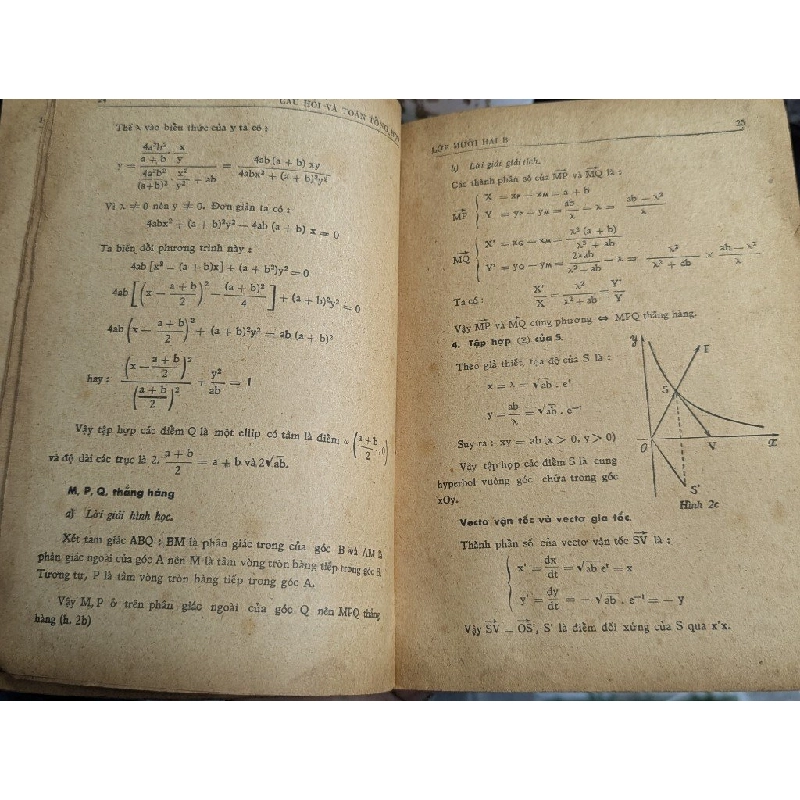 CÂU HỎI VÀ TOÁN TỔNG HỢP
Thế λ vào biểu thức của y ta có :
y = (4a²b²/(a + b) · x/y) / (4a²b²/(a+b)² · x²/y² + ab) = 4ab (a + b) xy / (4abx² + (a + b)²y²)
Vì λ ≠ 0 nên y ≠ 0. Đơn giản ta có :
4abx² + (a + b)²y² − 4ab (a + b) x = 0
Ta biến đổi phương trình này :
4ab [x² − (a + b)x] + (a + b)²y² = 0
4ab [(x − (a + b)/2)² − (a + b)²/4] + (a + b)²y² = 0
4ab (x − (a + b)/2)² + (a + b)²y² = ab (a + b)²
hay : (x − (a + b)/2)² / ((a + b)/2)² + y²/ab = 1
Vậy tập hợp các điểm Q là một ellip có tâm là điểm ω ((a + b)/2, 0)
và độ dài các trục là 2. (a + b)/2 = a + b và 2√ab.
M, P, Q, thẳng hàng
a) Lời giải hình học.
Xét tam giác ABQ : BM là phân giác trong của góc B và AM là
phân giác ngoài của góc A nên M là tâm vòng tròn bàng tiếp trong góc B.
Tương tự, P là tâm vòng tròn bàng tiếp trong góc A.
Vậy M, P ở trên phân giác ngoài của góc Q nên MPQ thẳng
hàng (h. 2b)
LỚP MƯỜI HAI B 25
b) Lời giải giải tích.
Các thành phần số của MP và MQ là :
MP { X = xP − xM = a + b
Y = yP − yM = ab/λ − λ = (ab − λ²)/λ
MQ { X' = xQ − xM = λ² (a + b)/(λ² + ab)
Y' = yQ − yM = 2λab/(λ² + ab) − λ = λ²/(λ² + ab) × (ab − λ²)/λ
Ta có : X'/X = λ²/(λ² + ab) = Y'/Y
Vậy MP và MQ cùng phương ⇔ MPQ thẳng hàng.
4. Tập hợp (Σ) của S.
Theo giả thiết, tọa độ của S là :
x = λ = √ab . eᵗ
y = ab/λ = √ab . e⁻ᵗ
Suy ra : xy = ab (x > 0, y > 0)
Vậy tập hợp các điểm S là cung
hyperbol vuông góc chứa trong góc
xOy.
y
Γ
S
O
V
x
S'
Hình 2c
Vectơ vận tốc và vectơ gia tốc
Thành phần số của vectơ vận tốc SV là :
{ x' = dx/dt = √ab eᵗ = x
y' = dy/dt = − √ab . e⁻ᵗ = − y
Vậy SV = OS', S' là điểm đối xứng của S qua x'x.